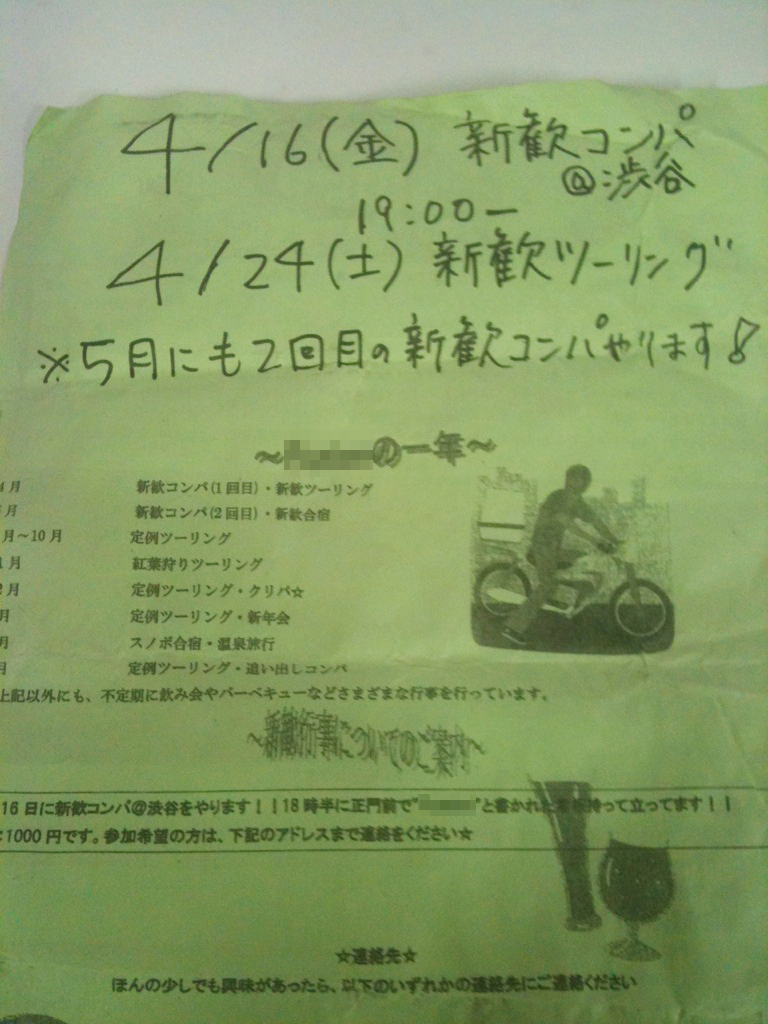 4/16(金) 新歓コンパ
@渋谷
19:00ー
4/24(土) 新歓ツーリング
※5月にも2回目の新歓コンパやります!
～の一年～
月 新歓コンパ(1回目)・新歓ツーリング
月 新歓コンパ(2回目)・新歓合宿
月～10月 定例ツーリング
月 紅葉狩りツーリング
月 定例ツーリング・クリパ☆
月 定例ツーリング・新年会
月 スノボ合宿・温泉旅行
月 定例ツーリング・追い出しコンパ
上記以外にも、不定期に飲み会やバーベキューなどさまざまな行事を行っています。
～新歓行事についてのご案内～
16日に新歓コンパ@渋谷をやります！！18時半に正門前で" "と書かれた 持って立ってます！！
:1000円です。参加希望の方は、下記のアドレスまで連絡をください☆
☆連絡先☆
ほんの少しでも興味があったら、以下のいずれかの連絡先にご連絡ください